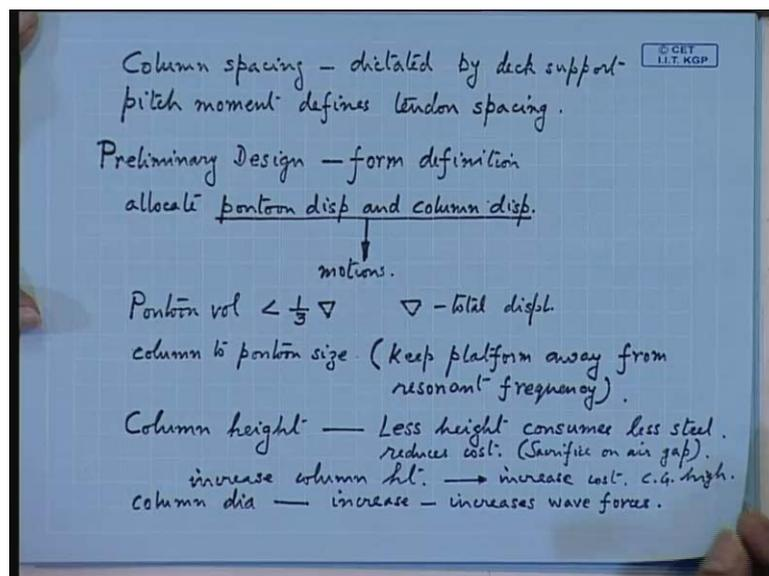 © CET
I.I.T. KGP
Column spacing – dictated by deck support
pitch moment defines tendon spacing.
Preliminary Design – form definition
allocate pontoon disp and column disp.
motions.
Pontoon vol < 1/3 ∇ ∇ – total displ.
column to pontoon size. (Keep platform away from
resonant frequency).
Column height — Less height consumes less steel.
reduces cost. (Sacrifice on air gap).
increase column ht. → increase cost. C.G. high.
column dia — increase – increases wave forces.